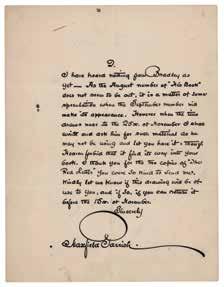 2.
I have heard nothing from Bradley as
yet — As the August number of "His Book"
does not seem to be out, it is a matter of some
speculation when the September number will
make its appearance. However when the time
draws near to the 25th. of November I shall
write and ask him for such material as he
may not be using and let you have it — though
Heaven forbid that it find its way into your
book. I thank you for the two copies of "The
Red Letter" you were so kind to send me.
Kindly let me know if this drawing will be of
use to you, and if so, if you can return it
before the 15th. of November.
Sincerely
Maxfield Parrish.